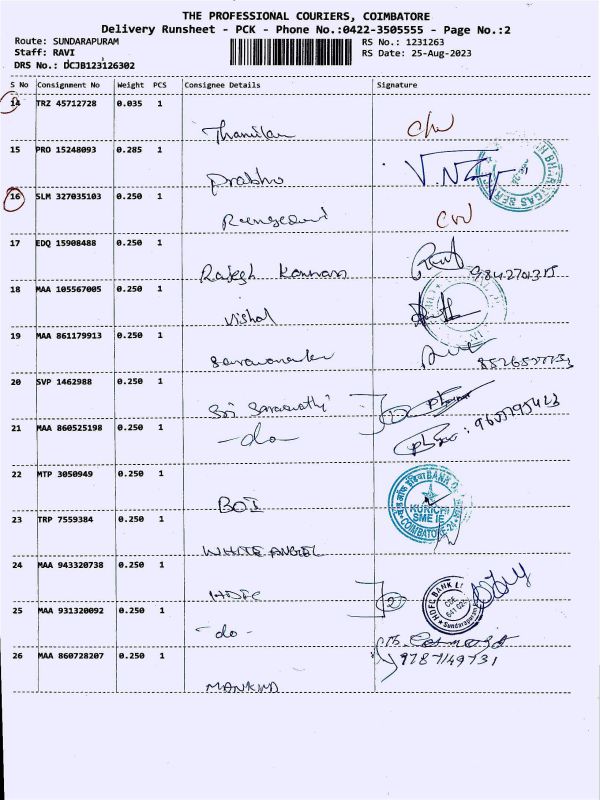 THE PROFESSIONAL COURIERS, COIMBATORE
Delivery Runsheet - PCK - Phone No.:0422-3505555 - Page No.:2
Route: SUNDARAPURAM RS No.: 1231263
Staff: RAVI RS Date: 25-Aug-2023
DRS No.: DCJB123126302
S No Consignment No Weight PCS Consignee Details Signature
14 TRZ 45712728 0.035 1
Thamilan
15 PRO 15248093 0.285 1
Prabhu V.N
16 SLM 327035103 0.250 1
17 EDQ 15908488 0.250 1
Rajesh Kannan 9842701315
18 MAA 105567005 0.250 1
Vishal
19 MAA 861179913 0.250 1
20 SVP 1462988 0.250 1
Sri Saraswathi
21 MAA 860525198 0.250 1
-do-
22 MTP 3050949 0.250 1
BOI
BANK
KURICHI
SME IE
COIMBATORE-24
23 TRP 7559384 0.250 1
WHITE ANGEL
24 MAA 943320738 0.250 1
HDFC 2
HDFC BANK
CBE
Sundarapuram
25 MAA 931320092 0.250 1
-do-
9787149731
26 MAA 860728207 0.250 1
MANKIND